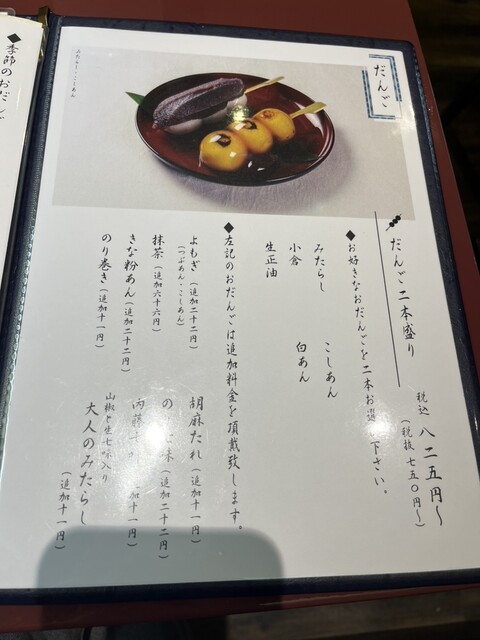 ◆季節のおだんご
だんご
よもだんご・こしあん
だんご二本盛り
税込 八二五円〜
(税抜 七五〇円〜)
◆お好きなおだんごを二本お選 下さい。
みたらし
こしあん
小倉
白あん
生正油
◆左記のおだんごは追加料金を頂戴致します。
よもぎ(追加二十二円)
(つぶあん・こしあん)
胡麻だれ(追加二十二円)
抹茶(追加六十六円)
の 味(追加二十二円)
きな粉あん(追加二十二円)
内藤 加十一円)
のり巻き(追加十一円)
山椒と生七味入り
大人のみたらし
(追加十一円)